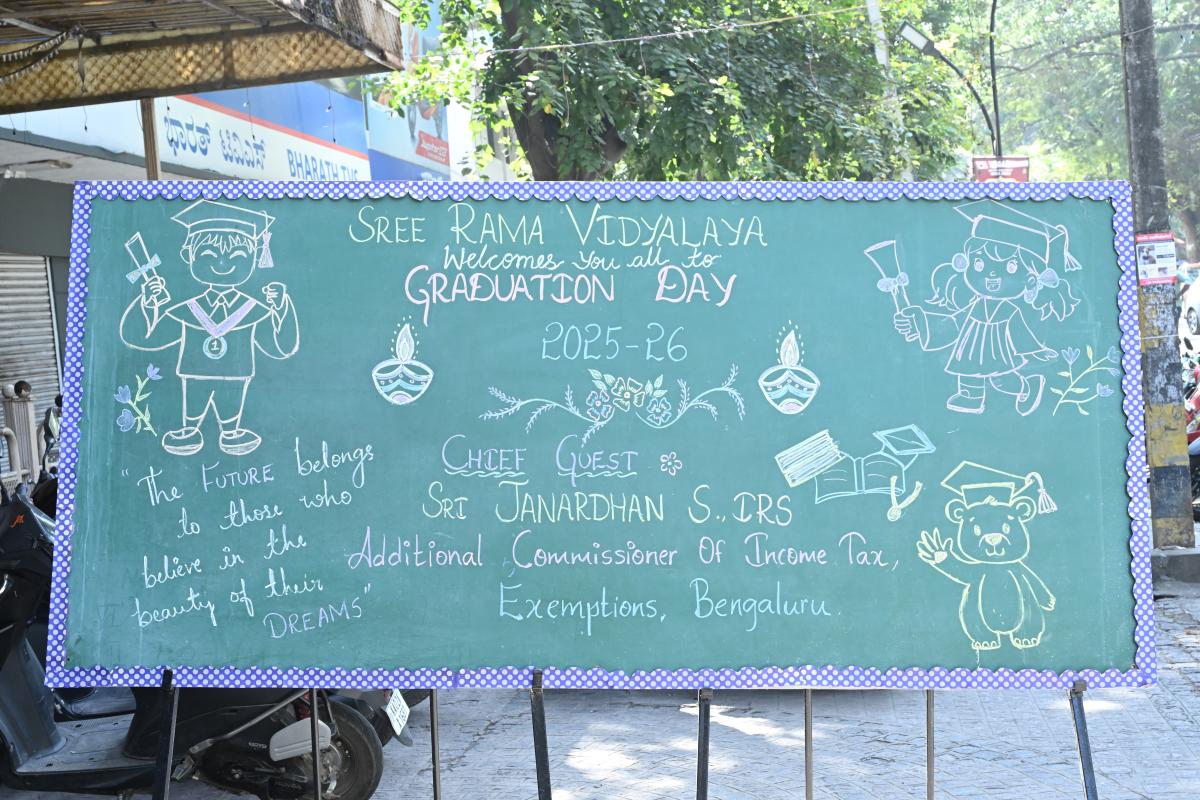 ಭಾರತ್ ಟಿವಿಎಸ್
BHARATH TVS
SREE RAMA VIDYALAYA
Welcomes you all to
GRADUATION DAY
2025-26
1
"The FUTURE belongs
to those who
believe in the
beauty of their
DREAMS"
CHIEF GUEST
SRI JANARDHAN S., IRS
Additional Commissioner Of Income Tax,
Exemptions, Bengaluru.